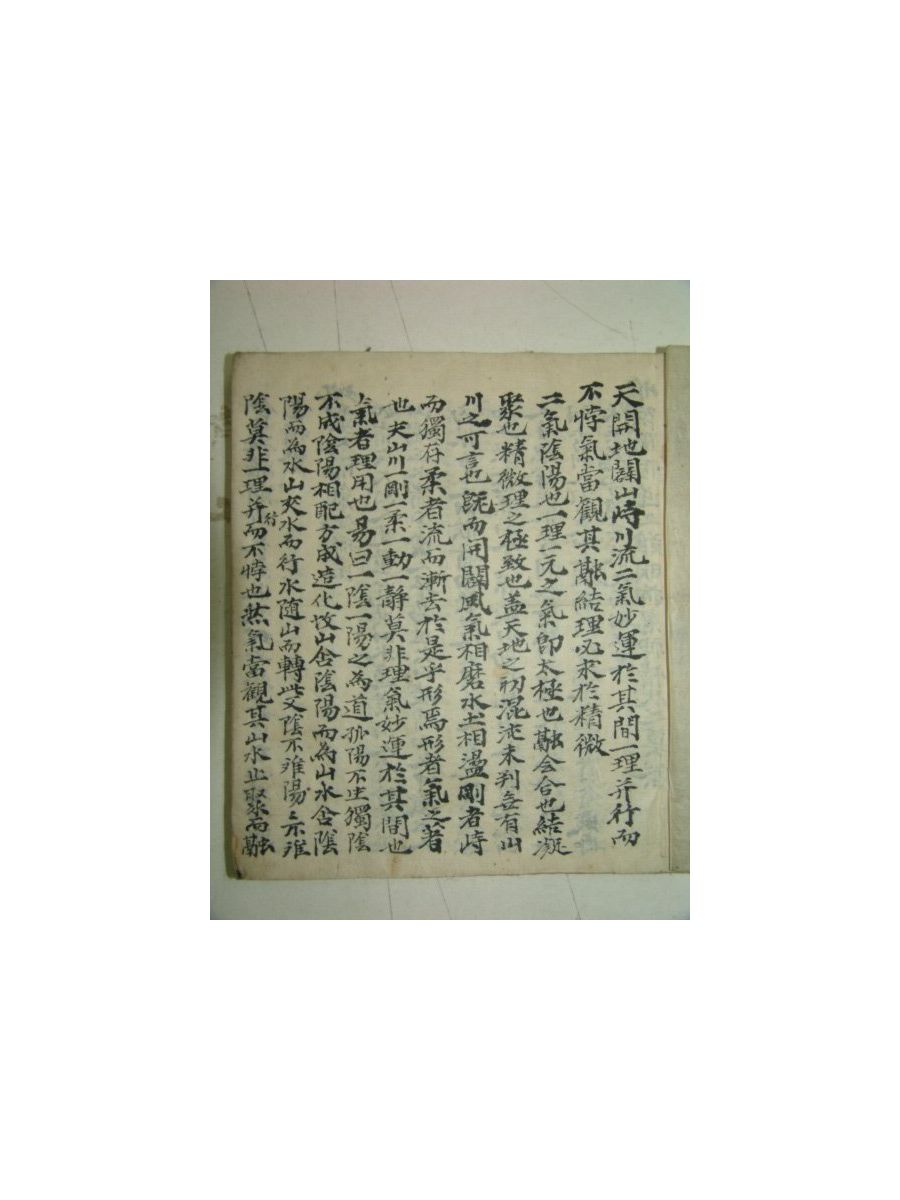 天開地闢山峙川流二氣妙運於其間一理并行而
不悖氣當觀其融結理必求於精微
二氣陰陽也一理一元之氣即太極也融会合也結凝
聚也精微理之極致也盖天地之初混沌未判無有山
川之可言也既而開闢風氣相磨水土相盪剛者峙
而獨存柔者流而漸去於是乎形焉形者氣之著
也夫山川一剛一柔一動一静莫非理氣妙運於其間也
氣者理用也易曰一陰一陽之為道孤陽不生獨陰
不成陰陽相配方成造化故山含陰陽而為山水含陰
陽而為水山夾水而行水随山而轉此又陰不離陽〻亦離
陰莫非一理并行而不悖也然氣當觀其山水止聚而融